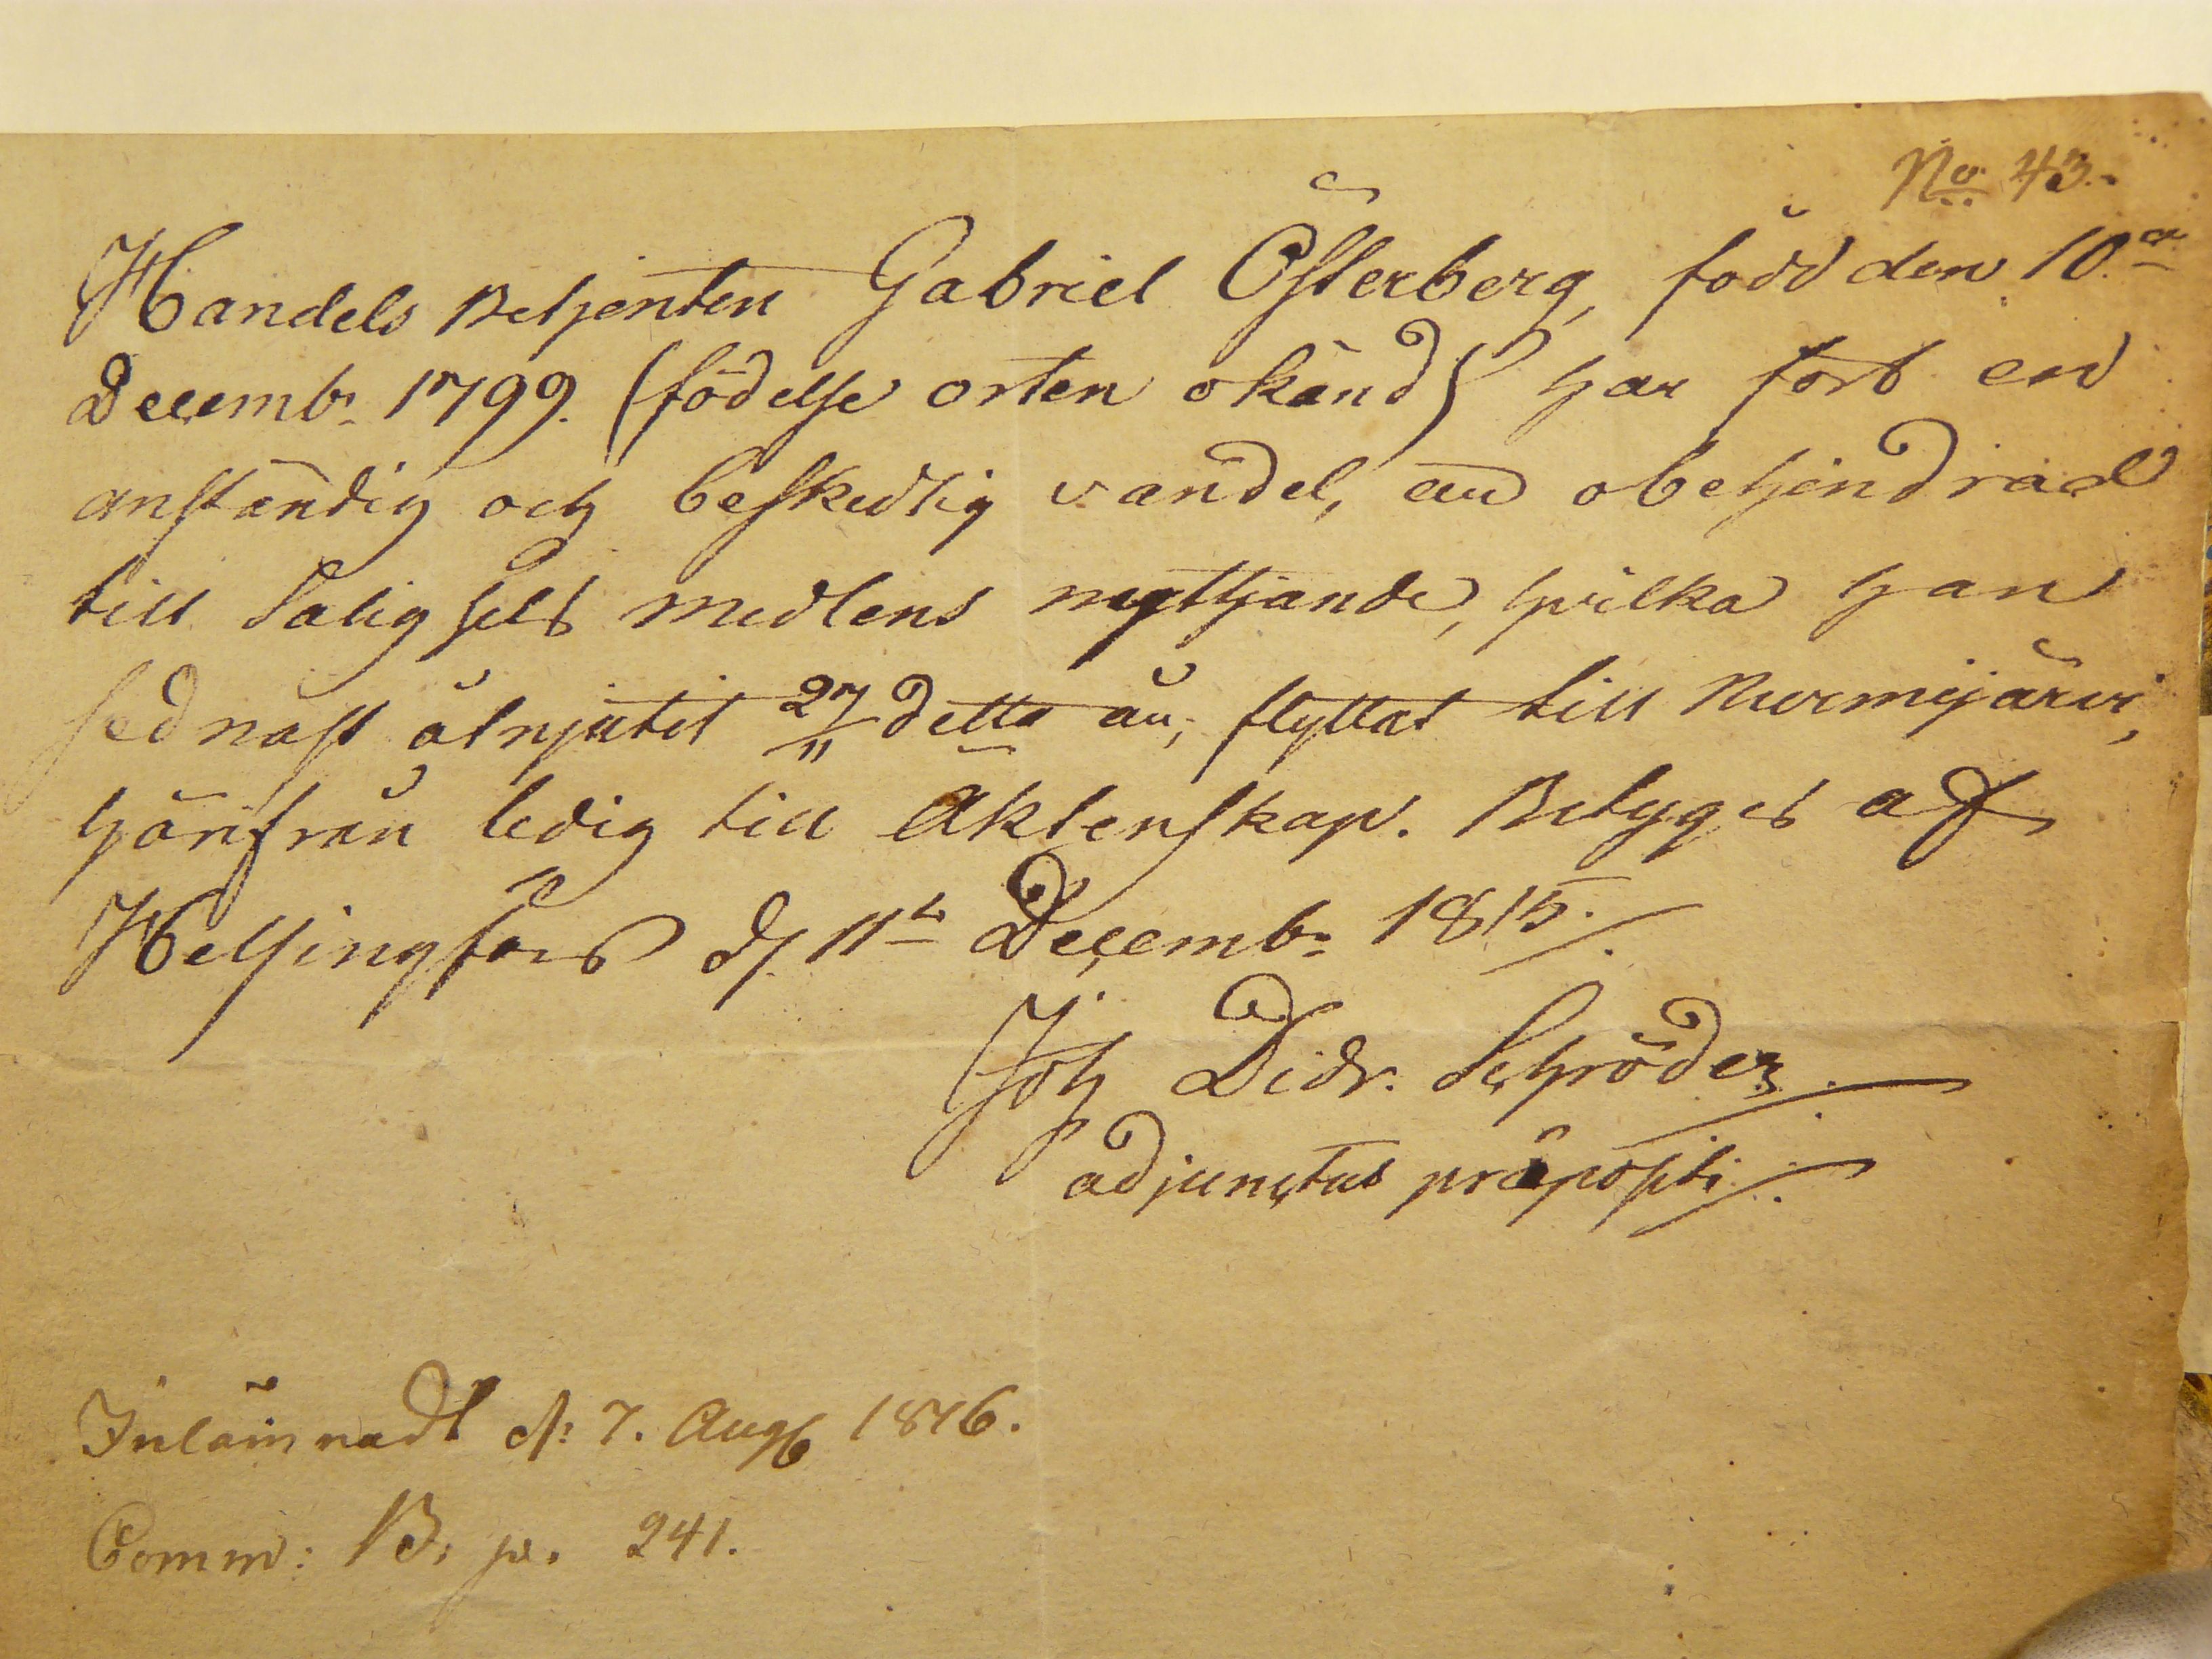 No. 43.
Handels Betjenten Gabriel Österberg, född den 10.de
Decemb: 1799. (födelse orten okänd) har fört en
anständig och beskedlig vandel, är obehindrad
till Salighets medlens nyttjande, hvilka han
sednast åtnjutit 27/11 detta år, flyttat till Nurmijärvi,
härifrån ledig till Äktenskap. Betyges af
Helsingfors d. 11te Decemb: 1815.
Joh Didr. Schröder
adjunctus præpositi
Inlämnadt d: 7. Aug 1816.
Comm: B. p. 241.